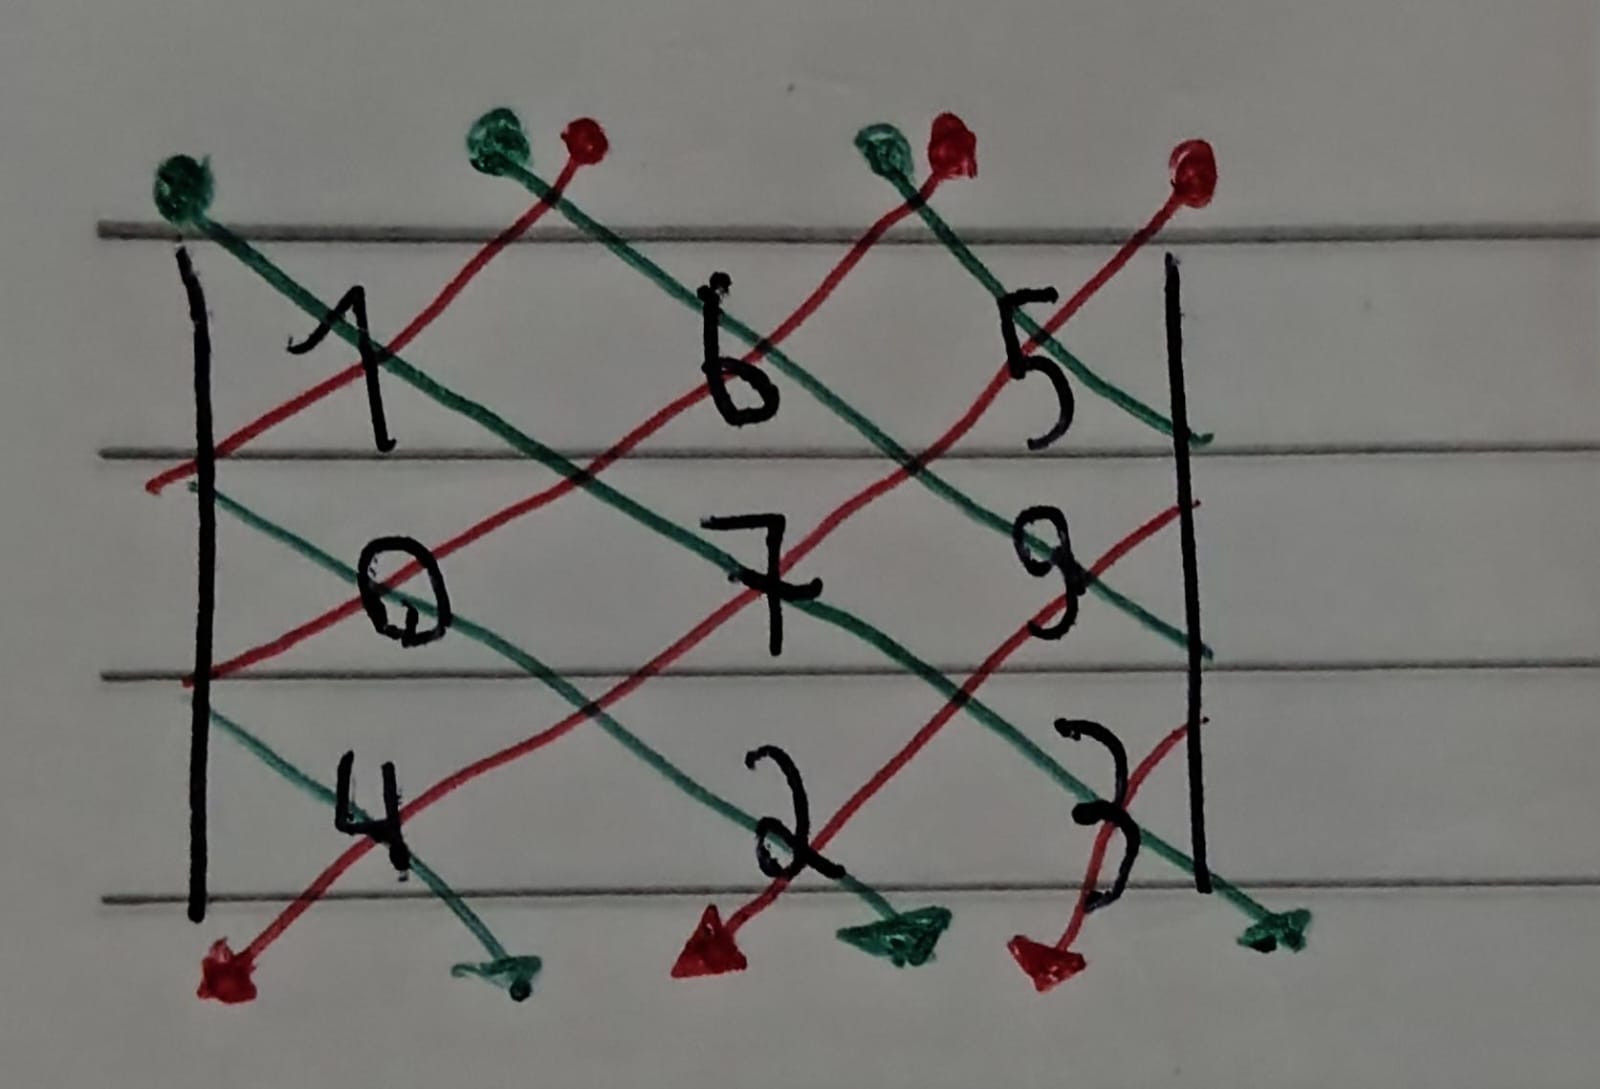 1 6 5
0 7 9
4 2 3